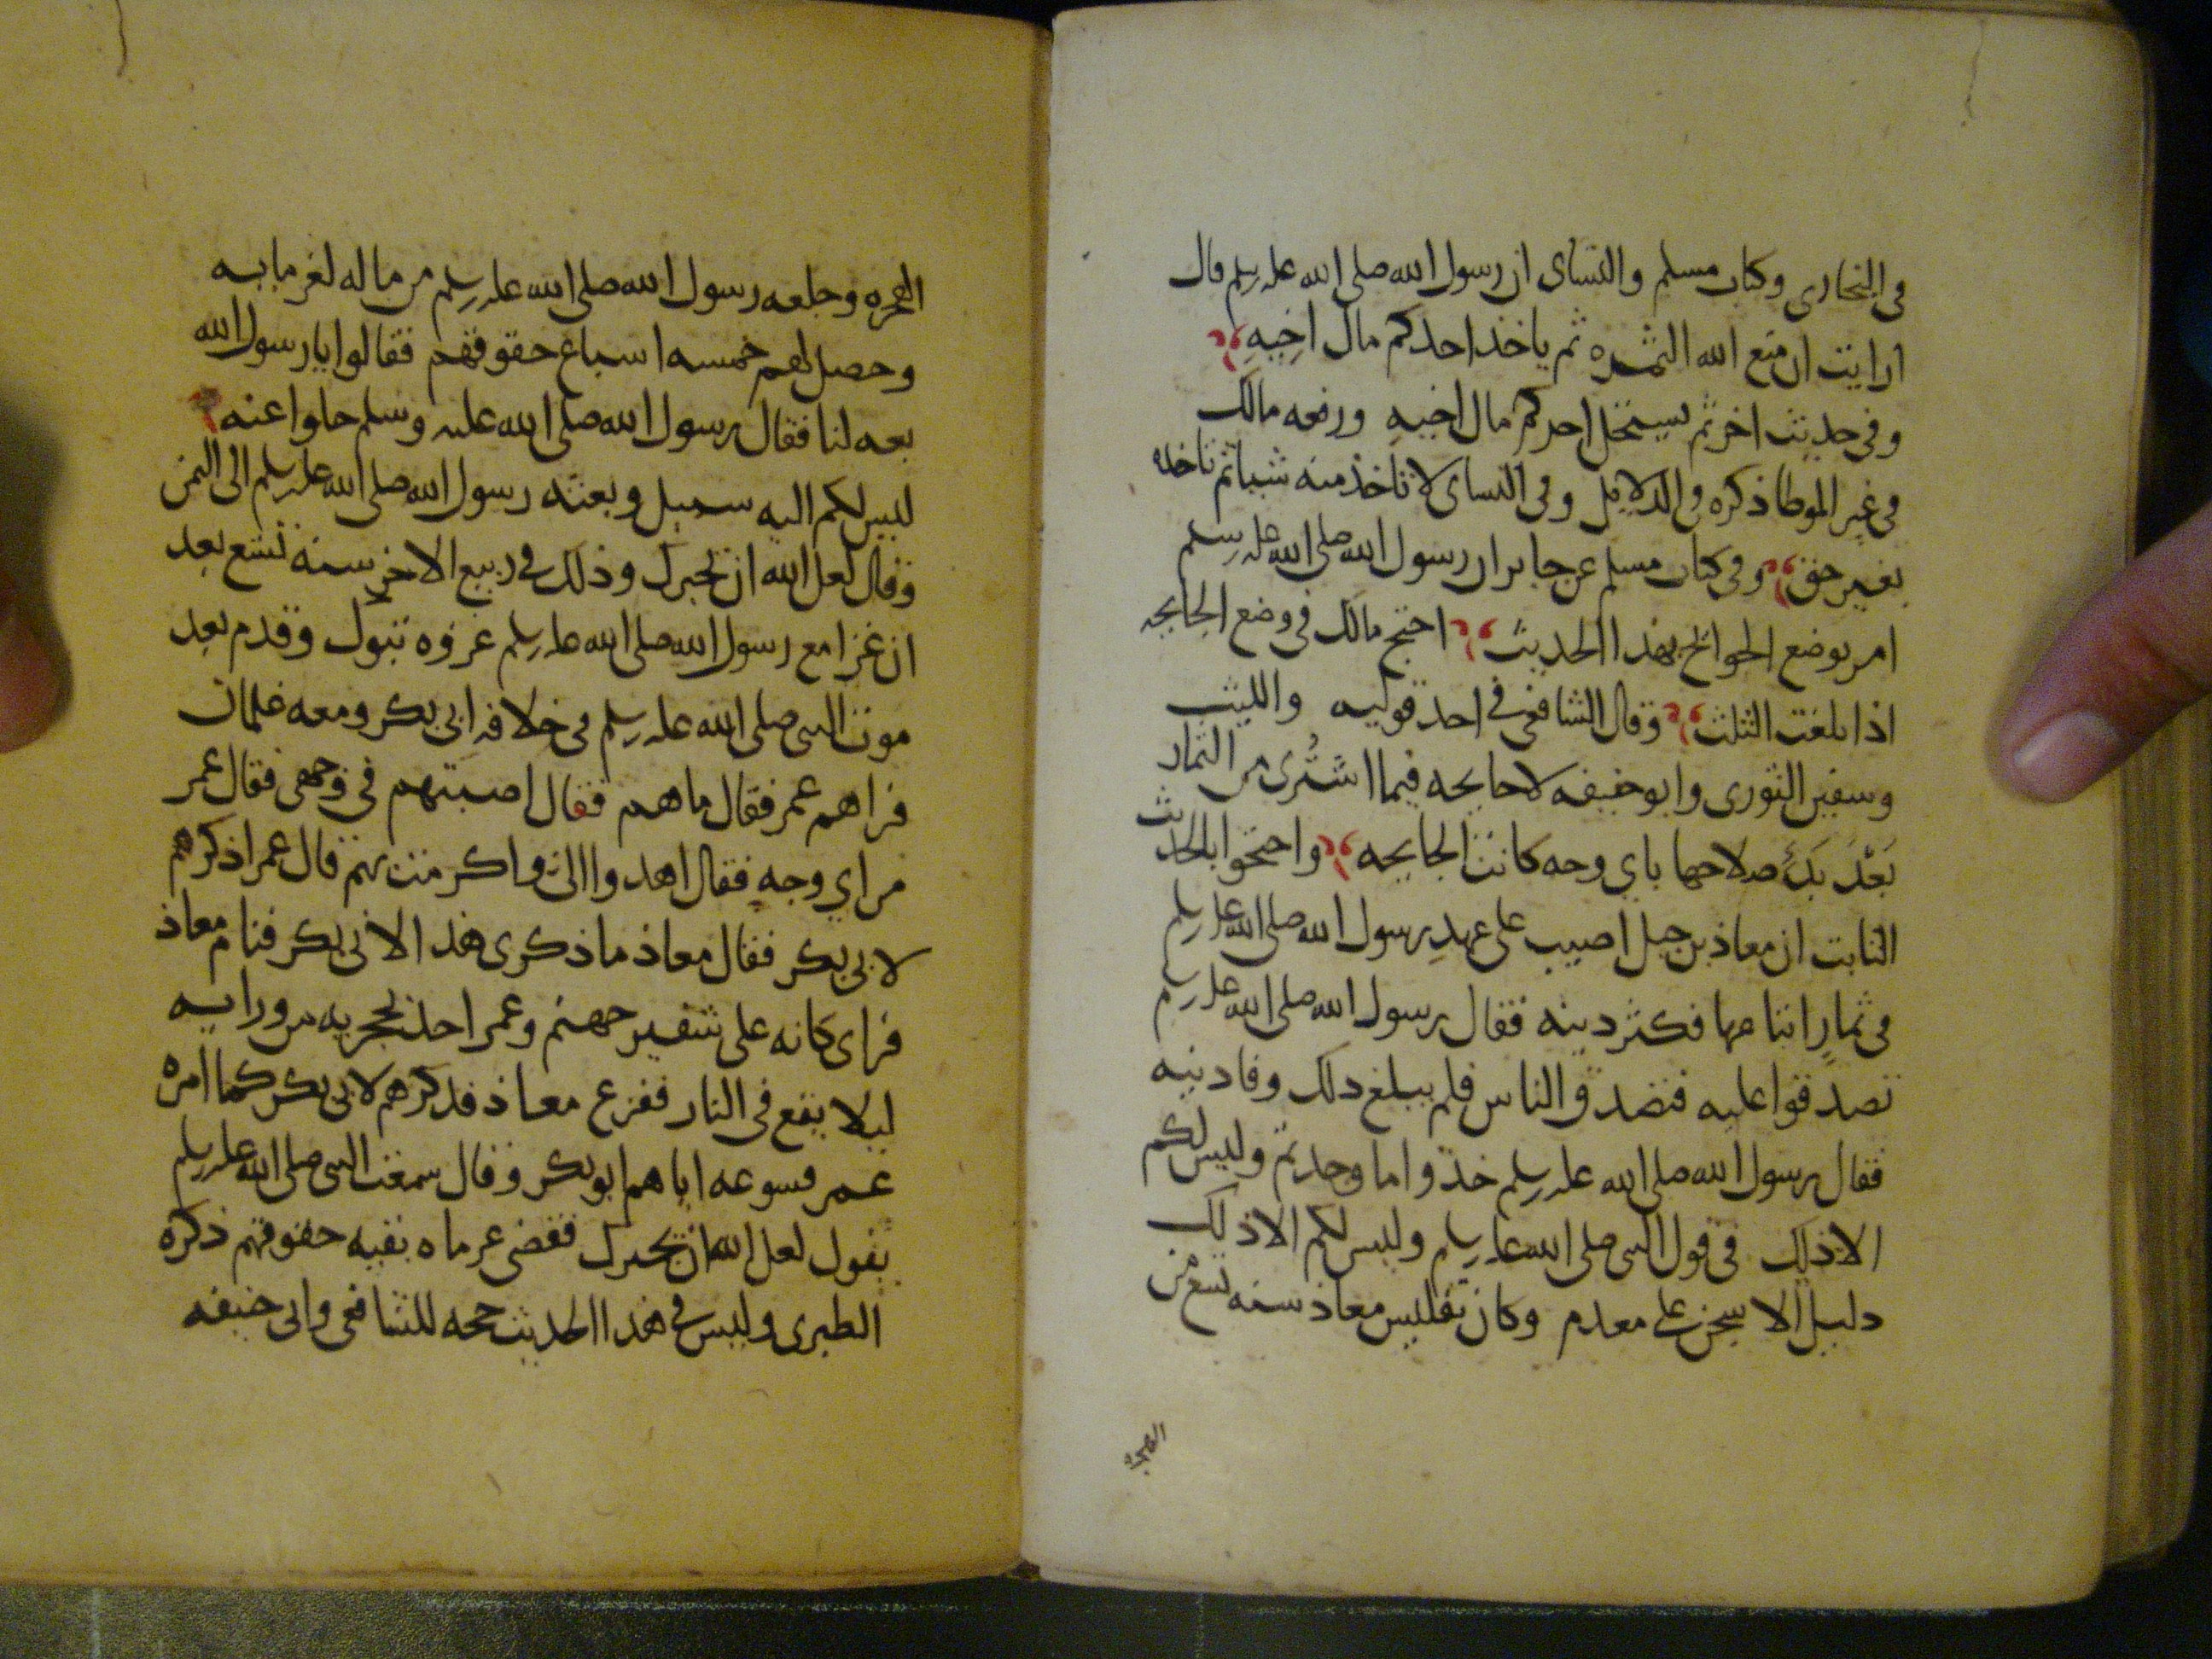 في البخارى وكتاب مسلم والنساى ان رسول الله صلى الله عليه وسلم قال
ارايت ان منع الله الثمره ثم ياخذ احدكم مال اخيهِ
وفي حديث اخر ثم يستحل احدكم مال اخيه ورفعه مالك
في غير الموطا ذكره في الدلايل وفي النساى لا تاخذ منه شيا ثم تاخذه
بغير حق وفي كتاب مسلم عن جابر ان رسول الله صلى الله عليه وسلم
امر بوضع الجوائح بهذا الحديث احتج مالك في وضع الجايحه
اذا بلغت الثلث وقال الشافعي في احد قوليه والليث
وسفين الثورى وابو حنيفه لا جايحه فيما اشتُرى من الثمار
بَعْدَ بَدْء صلاحها باي وجه كانت الجايحه واحتجوا بالحديث
الثابت ان معاذ بن جبل اصيب على عهد رسول الله صلى الله عليه وسلم
في ثمارٍ ابتاعها فكثر دينه فقال رسول الله صلى الله عليه وسلم
تصدقوا عليه فتصدق الناس فلم يبلغ ذلك وفا دينه
فقال رسول الله صلى الله عليه وسلم خذوا ما وجدتم وليس لكم
الا ذلك في قول النبي صلى الله عليه وسلم وليس لكم الا ذلك
دليل الا سجن على معدم وكان تفليس معاذ سنه تسع من
الهجرة
الهجره وخلعه رسول الله صلى الله عليه وسلم من ماله لغرمايه
وحصل لهم خمسه اسباع حقوقهم فقالوا يا رسول الله
بعه لنا فقال رسول الله صلى الله عليه وسلم خلوا عنه
ليس لكم اليه سبيل وبعثه رسول الله صلى الله عليه وسلم الى اليمن
وقال لعل الله ان يجبرك وذلك في ربيع الاخر سنه تسع بعد
ان غزا مع رسول الله صلى الله عليه وسلم غزوه تبوك وقدم بعد
موت النبي صلى الله عليه وسلم في خلافه ابي بكر ومعه غلمان
فراهم عمر فقال ما هم فقال اصبتهم في وجهي فقال عمر
من اي وجهٍ فقال اهدوا الي واكرمت بهم قال عمر اذكرهم
لابي بكر فقال معاذ ما ذكرى هذا لابي بكر فنام معاذ
فراى كانه على شفير جهنم وعمر اخذ بحجزته من ورايه
ليلا يقع في النار ففزع معاذ فذكرهم لابي بكر كما امره
عمر فسوغه اياهم ابو بكر وقال سمعت النبي صلى الله عليه وسلم
يقول لعل الله ان يجبرك فقضى غرماه بقيه حقوقهم ذكره
الطبرى وليس في هذا الحديث حجه للشافعي وابي حنيفه